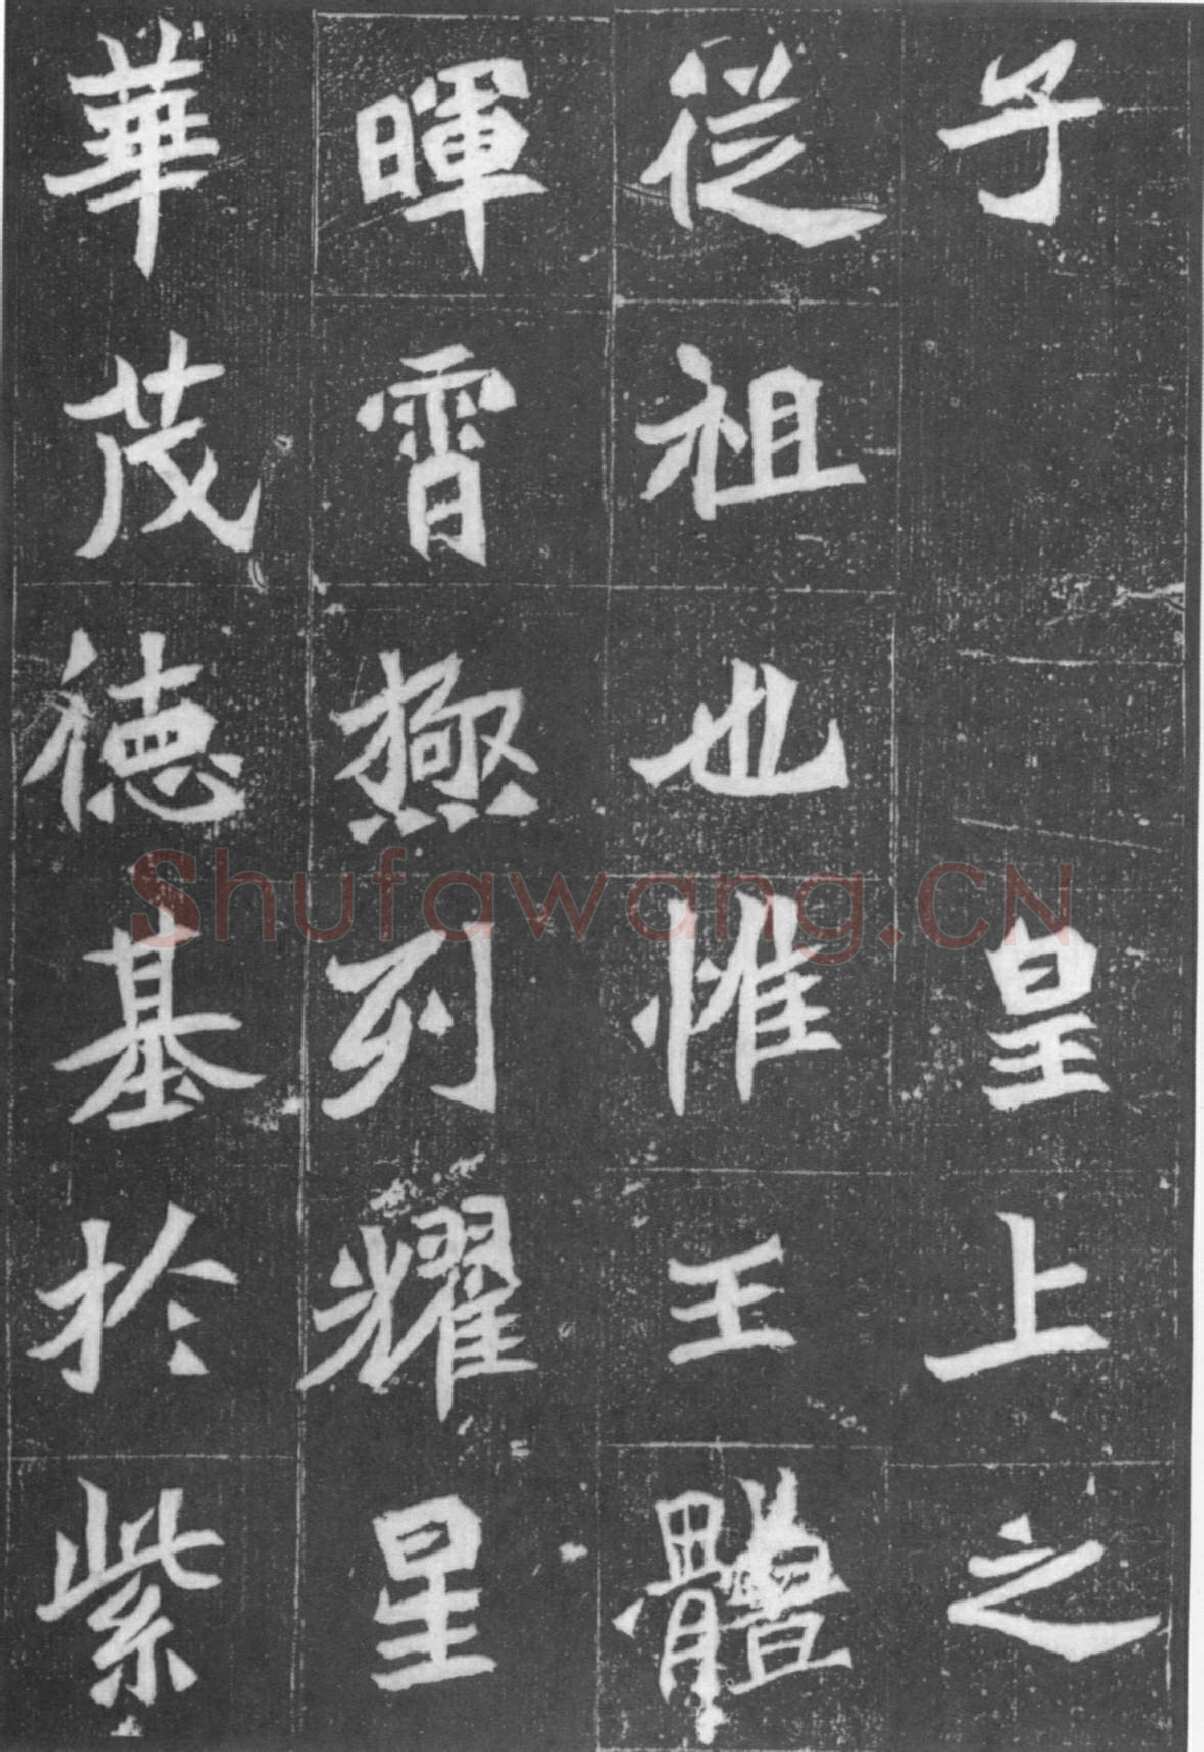 子皇上之
從祖也惟王體
暉霄極列耀星
華茂德基於紫
Shufawang.CN